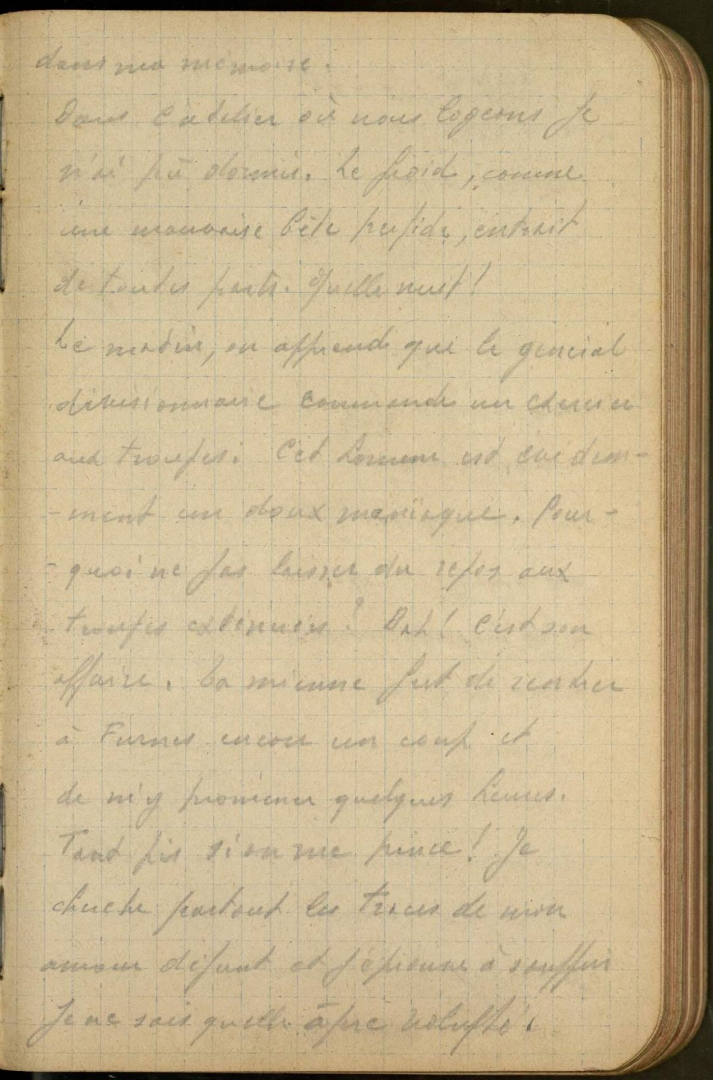 dans ma mémoire.
Dans l'atelier où nous logeons je
n'ai pû dormir. Le froid, comme
une mauvaise bête perfide, entrait
de toutes parts. Quelle nuit!
Le matin, on apprend que le général
divisionnaire commande un exercice
aux troupes. Cet homme est évidem-
-ment un doux maniaque. Pour-
-quoi ne pas laisser du repos aux
troupes exténuées? Bah! C'est son
affaire. La mienne fut de rentrer
à Furnes encore un coup et
de m'y promener quelques heures.
Tant pis si on me pince! Je
cherche partout les traces de mon
amour défunt et j'éprouve à souffrir
je ne sais quelle âpre volupté.